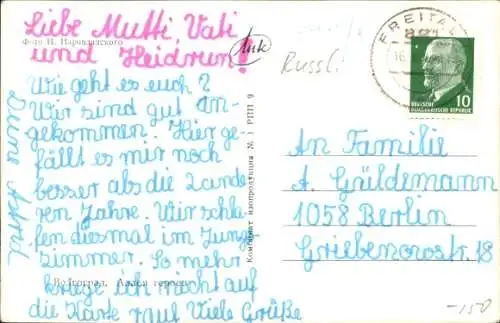 Liebe Mutti, Vati
und Heidrun!
Wie geht es euch?
Wir sind gut an-
gekommen. Hier ge-
fällt es mir noch
besser als die lande-
ren Jahre. Wir schla-
fen diesmal im Jung
zimmer. So mehr
kriege ich nicht auf
die Karte rauf Viele Grüße
Фото Н.
Волгоград. Аллея героев
Комбинат изопродукции № 1 РПП 9
Russl.
FREITAL
DEUTSCHE
DEMOKRATISCHE REPUBLIK
10
An Familie
A. Güldemann
1058 Berlin
Griebenowstr. 18
-150